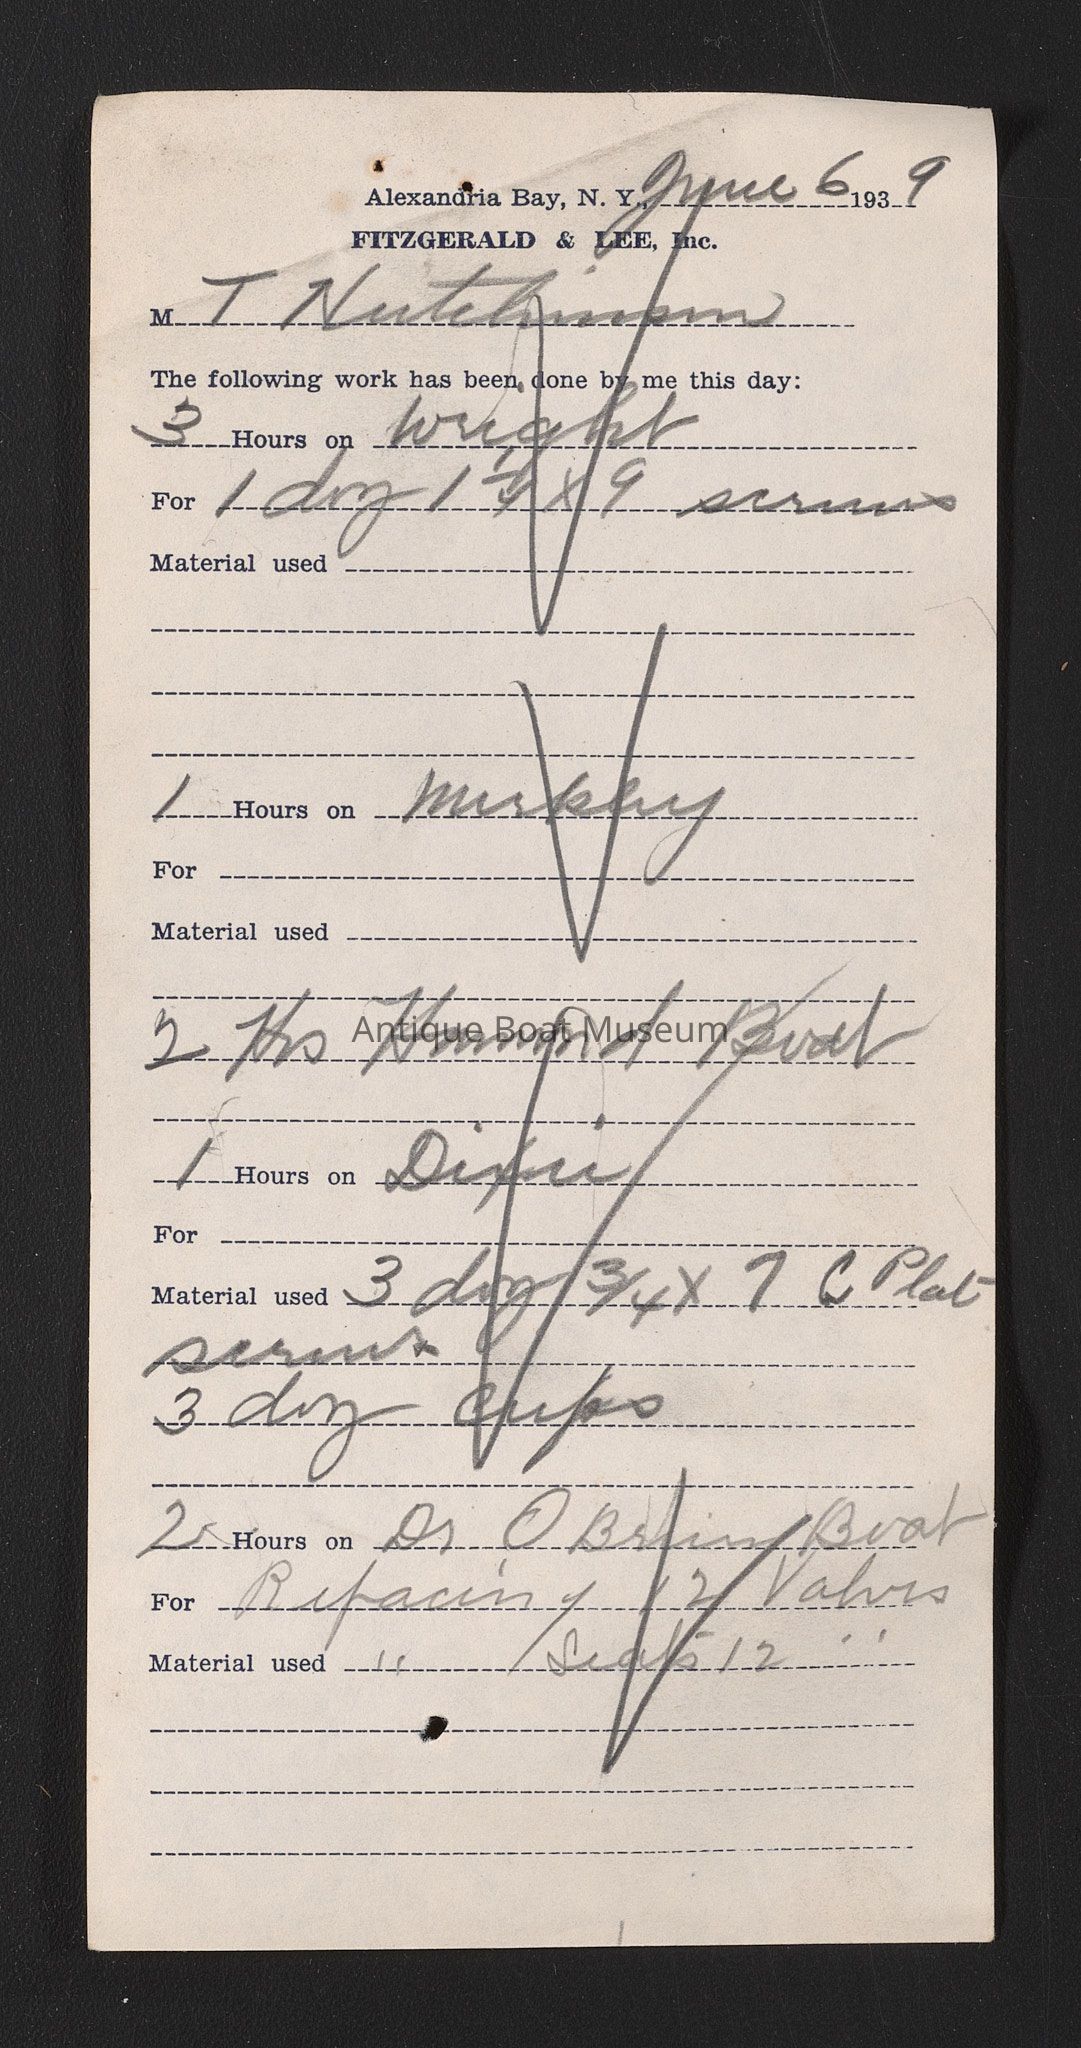 Alexandria Bay, N. Y., June 6 1939
FITZGERALD & LEE, Inc.
M T Hutchinson
The following work has been done by me this day:
3 Hours on Wright
For 1 doz 1 1/4 x 9 screws
Material used
1 Hours on
For
Material used
2 Hrs Hammond Boat
Antique Boat Museum
1 Hours on Dixie
For
Material used 3 doz 3/4 x 7 C Plat
screws
3 doz cups
2 Hours on Dr O Brien Boat
For Refacing 12 Valves
Material used " Seats 12 "